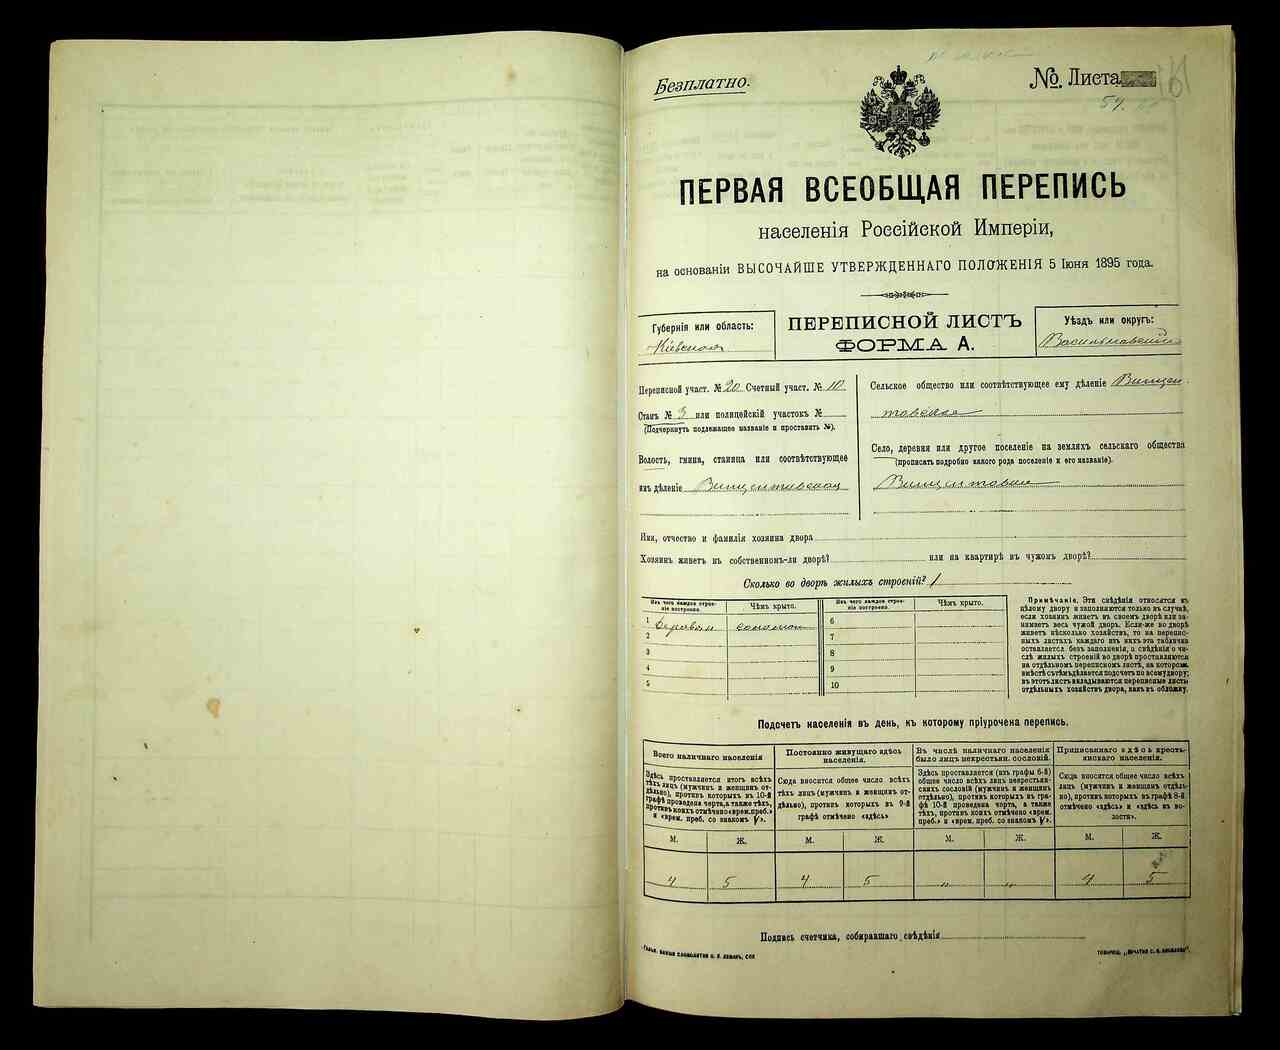 Безплатно.
№ Листа
57.
ПЕРВАЯ ВСЕОБЩАЯ ПЕРЕПИСЬ
населенія Россійской Имперіи,
на основаніи ВЫСОЧАЙШЕ УТВЕРЖДЕННАГО ПОЛОЖЕНІЯ 5 Іюня 1895 года.
Губернія или область:
Кіевская
ПЕРЕПИСНОЙ ЛИСТЪ
ФОРМА А.
Уѣздъ или округъ:
Васильковскій
Переписной участ. № 20 Счетный участ. № 10
Станъ № 3 или полицейскій участокъ №
(Подчеркнуть подлежащее названіе и проставить №).
Волость, гмина, станица или соотвѣтствующее
имъ дѣленіе Винцентовская
Сельское общество или соотвѣтствующее ему дѣленіе Винцен
товское
Село, деревня или другое поселеніе на земляхъ сельскаго общества
(прописать подробно какого рода поселеніе и его названіе).
Винцентовка
Имя, отчество и фамилія хозяина двора
Хозяинъ живетъ въ собственномъ-ли дворѣ? или на квартирѣ въ чужомъ дворѣ?
Сколько во дворѣ жилыхъ строеній? 1
Изъ чего каждое строе-
ніе построено.
Чѣмъ крыто.
Изъ чего каждое строе-
ніе построено.
Чѣмъ крыто.
1 Деревян соломой 6
2 7
3 8
4 9
5 10
Примѣчаніе. Эти свѣдѣнія относятся къ
цѣлому двору и заполняются только въ случаѣ,
если хозяинъ живетъ въ своемъ дворѣ или за-
нимаетъ весь чужой дворъ. Если-же во дворѣ
живетъ нѣсколько хозяйствъ, то на перепис-
ныхъ листахъ каждаго изъ нихъ эта табличка
оставляется безъ заполненія, а свѣдѣнія о чи-
слѣ жилыхъ строеній во дворѣ проставляются
на отдѣльномъ переписномъ листѣ, на которомъ
вмѣстѣ съ тѣмъ дѣлается подсчетъ по всему двору;
въ этотъ листъ вкладываются переписные листы
отдѣльныхъ хозяйствъ двора, какъ въ обложку.
Подсчетъ населенія въ день, къ которому пріурочена перепись.
Всего наличнаго населенія
Здѣсь проставляется итогъ всѣхъ
лицъ (мужчинъ и женщинъ от-
дѣльно), противъ которыхъ въ 10-й
графѣ проведена черта, а также тѣхъ,
противъ коихъ отмѣчено «врем. преб.»
и «врем. преб. со знакомъ V».
Постоянно живущаго здѣсь
населенія.
Сюда вносится общее число всѣхъ
тѣхъ лицъ (мужчинъ и женщинъ от-
дѣльно), противъ которыхъ въ 9-й
графѣ отмѣчено «здѣсь»
Въ числѣ наличнаго населенія
было лицъ некрестьян. сословій.
Здѣсь проставляется (изъ графы 6-й)
общее число всѣхъ лицъ некрестьян-
скихъ сословій (мужчинъ и женщинъ
отдѣльно), противъ которыхъ въ гра-
фѣ 10-й проведена черта, а также
тѣхъ, противъ коихъ отмѣчено «врем.
преб.» и «врем. преб. со знакомъ V».
Приписаннаго здѣсь кресть-
янскаго населенія.
Сюда вносится общее число всѣхъ
лицъ (мужчинъ и женщинъ отдѣль-
но), противъ которыхъ въ графѣ 8-й
отмѣчено «здѣсь» и «здѣсь въ во-
лости».
М. Ж. М. Ж. М. Ж. М. Ж.
4 5 4 5 „ „ 4 5
Подпись счетчика, собиравшаго свѣдѣнія